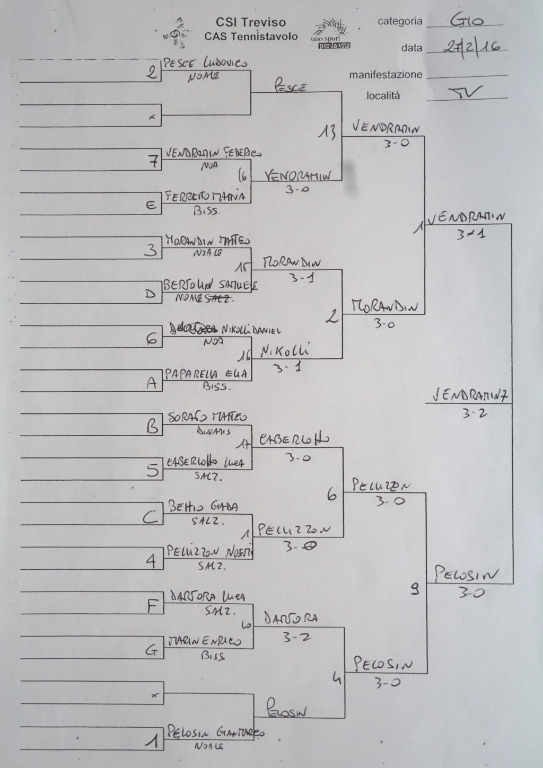 CSI Treviso
CAS Tennistavolo
uno sport
per la vita
categoria GIO
data 27/2/16
manifestazione
località TV
2 PESCE LUDOVICO
NOALE
PESCE
x
13 VENDRAMIN
3-0
7 VENDRAMIN FEDERICO
NOA
16 VENDRAMIN
3-0
E FERRETTO MATTIA
BISS.
1 VENDRAMIN
3-1
3 MORANDIN MATTEO
NOALE
15 MORANDIN
3-1
D BERTOLIN SAMUELE
NOALE SALZ.
2 MORANDIN
3-0
6 NIKOLLI DANIEL
NOA
16 NIKOLLI
3-1
A PAPARELLA ELIA
BISS.
VENDRAMIN 7
3-2
B SORATO MATTEO
DINAMIS
17 CABERLOTTO
3-0
5 CABERLOTTO LUCA
SALZ.
6 PELLIZZON
3-0
C BETTIO GIADA
SALZ.
1 PELLIZZON
3-0
4 PELLIZZON NOEMI
SALZ.
9 PELOSIN
3-0
F DARTORA LUCA
SALZ.
DARTORA
3-2
G MARIN ENRICO
BISS
4 PELOSIN
3-0
x
PELOSIN
1 PELOSIN GIANMARCO
NOALE